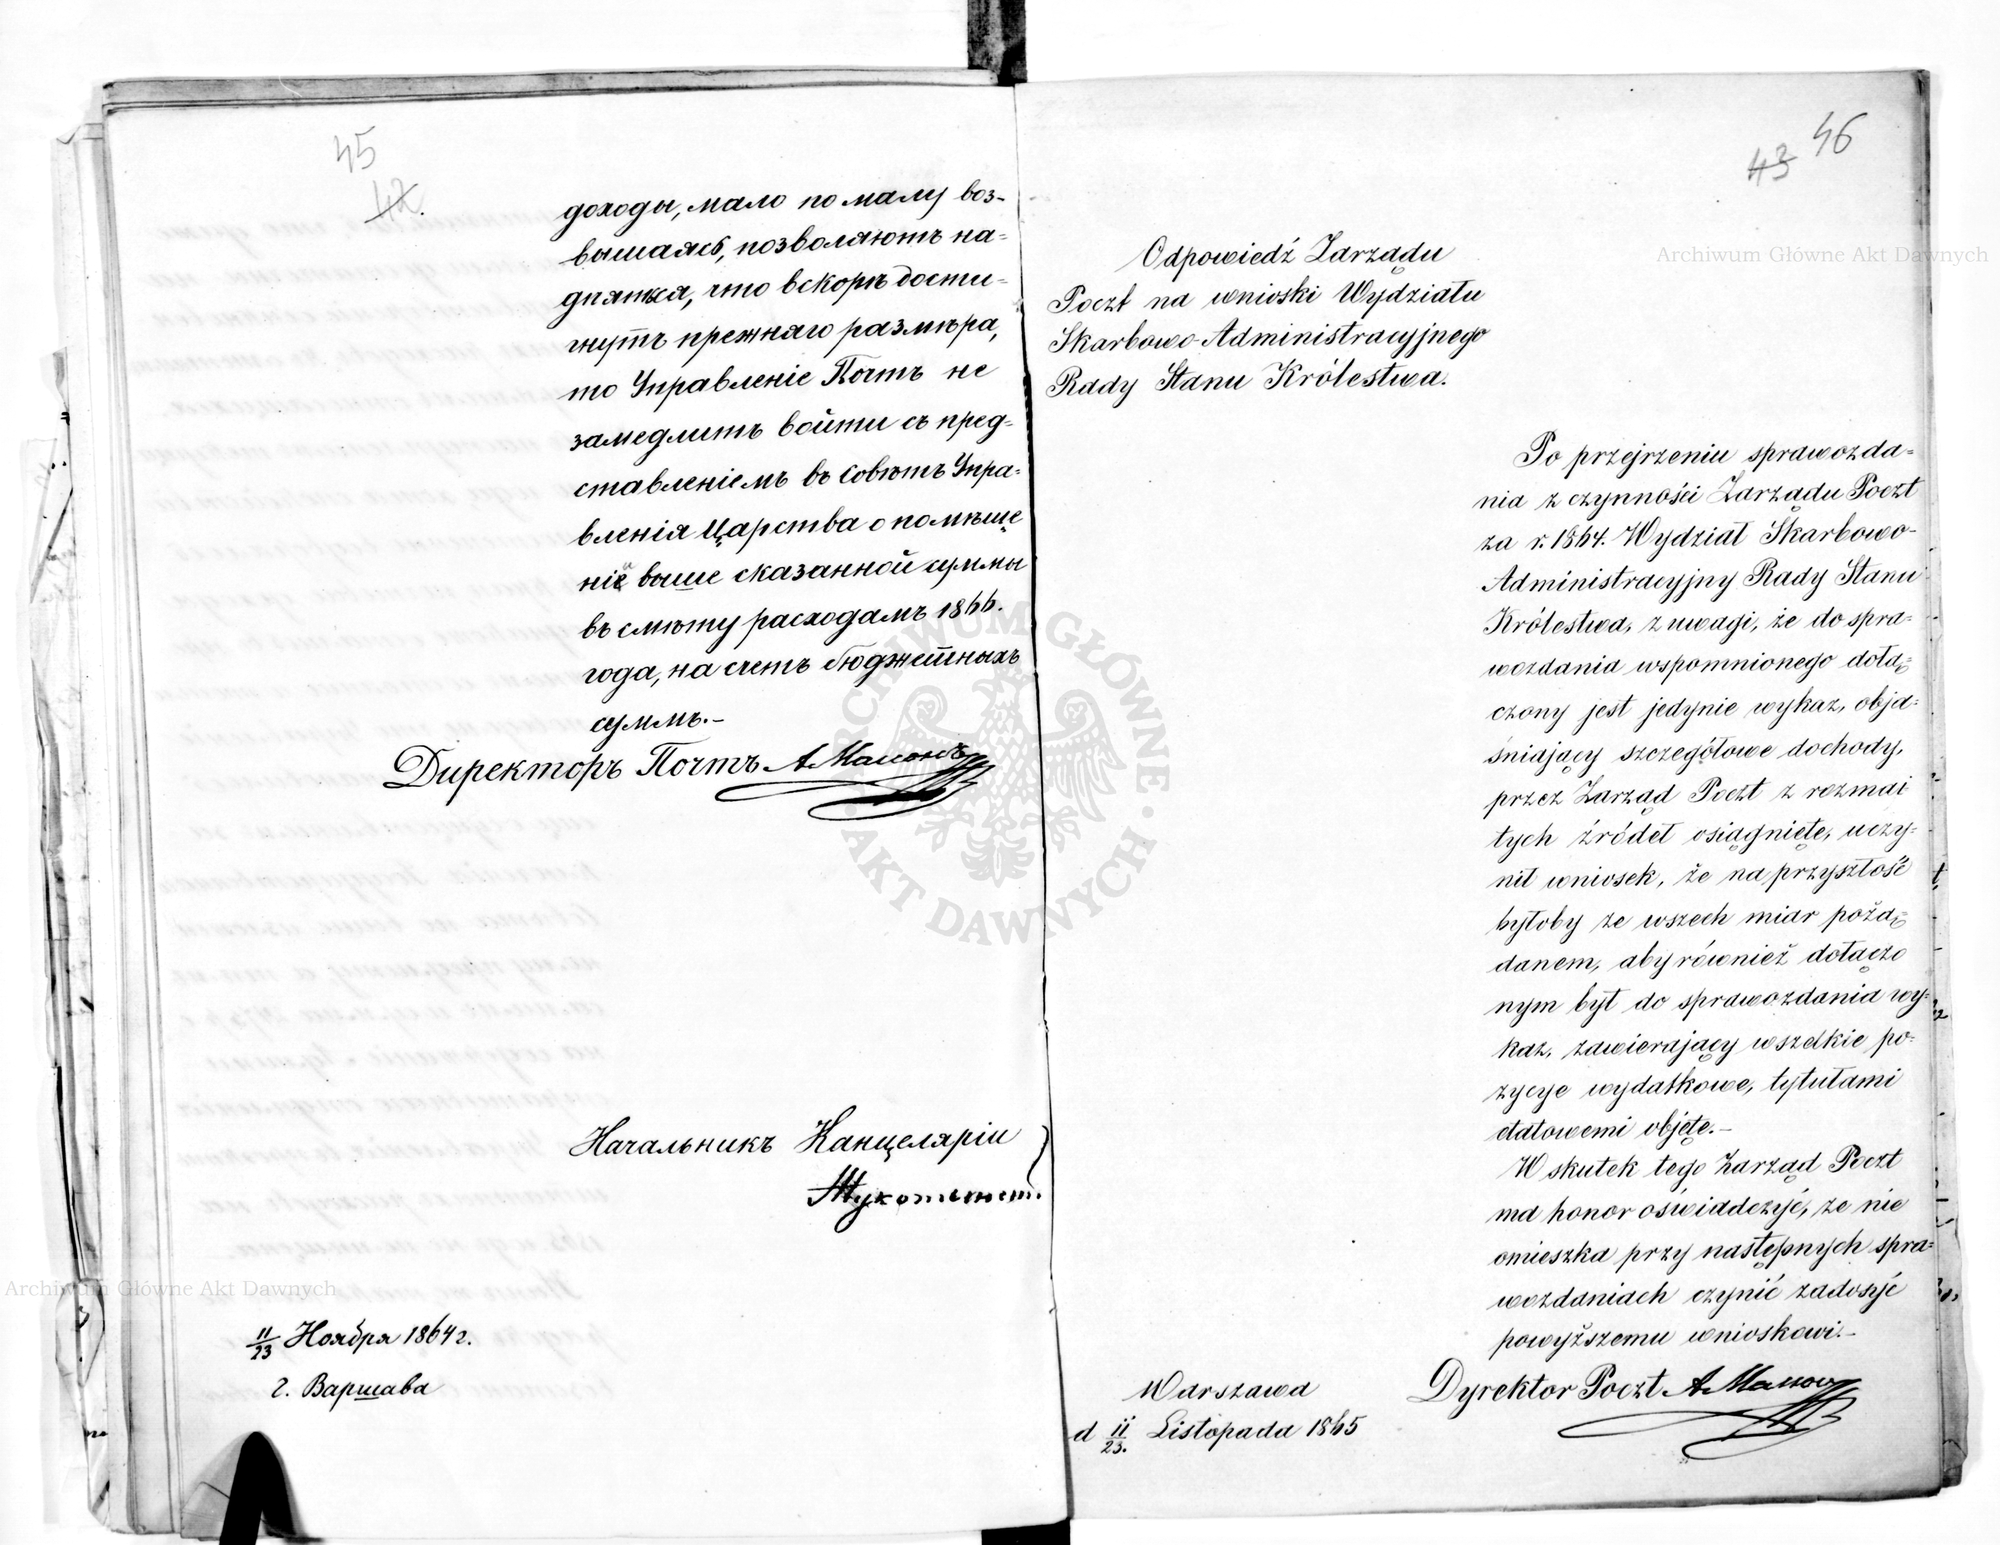 45
42.
доходы, мало по малу воз-
вышаясь, позволяютъ на-
дѣяться, что вскорѣ дости-
гнутъ прежняго размѣра,
то Управленіе Почтъ не
замедлитъ войти съ пред-
ставленіемъ въ Совѣтъ Упра-
вленія Царства о помѣще
ніи выше сказанной суммы
въ смѣту расходамъ 1866.
года, на счетъ бюджетныхъ
суммъ.-
Директоръ Почтъ
Начальникъ Канцеляріи
11/23 Ноября 1864 г.
г. Варшава
46
43
Odpowiedź Zarządu
Poczt na wnioski Wydziału
Skarbowo-Administracyjnego
Rady Stanu Królestwa.
Po przejrzeniu sprawozda-
nia z czynności Zarządu Poczt
za r. 1864. Wydział Skarbowo-
Administracyjny Rady Stanu
Królestwa, z uwagi, że do spra-
wozdania wspomnionego dołą-
czony jest jedynie wykaz, obja-
śniający szczegółowe dochody,
przez Zarząd Poczt z rozmai
tych źródeł osiągnięte, uczy-
nił wniosek, że na przyszłość
byłoby ze wszech miar pożą-
danem, aby również dołączo
nym był do sprawozdania wy-
kaz, zawierający wszelkie po-
zycye wydatkowe, tytułami
etatowemi objęte.-
W skutek tego Zarząd Poczt
ma honor oświadczyć, że nie
omieszka przy następnych spra-
wozdaniach czynić zadosyć
powyższemu wnioskowi.-
Dyrektor Poczt
Warszawa
d 11/23. Listopada 1865
Archiwum Główne Akt Dawnych
Archiwum Główne Akt Dawnych
ARCHIWUM GŁÓWNE AKT DAWNYCH